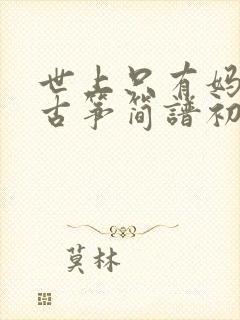 世上只有妈
古筝简谱初
莫林